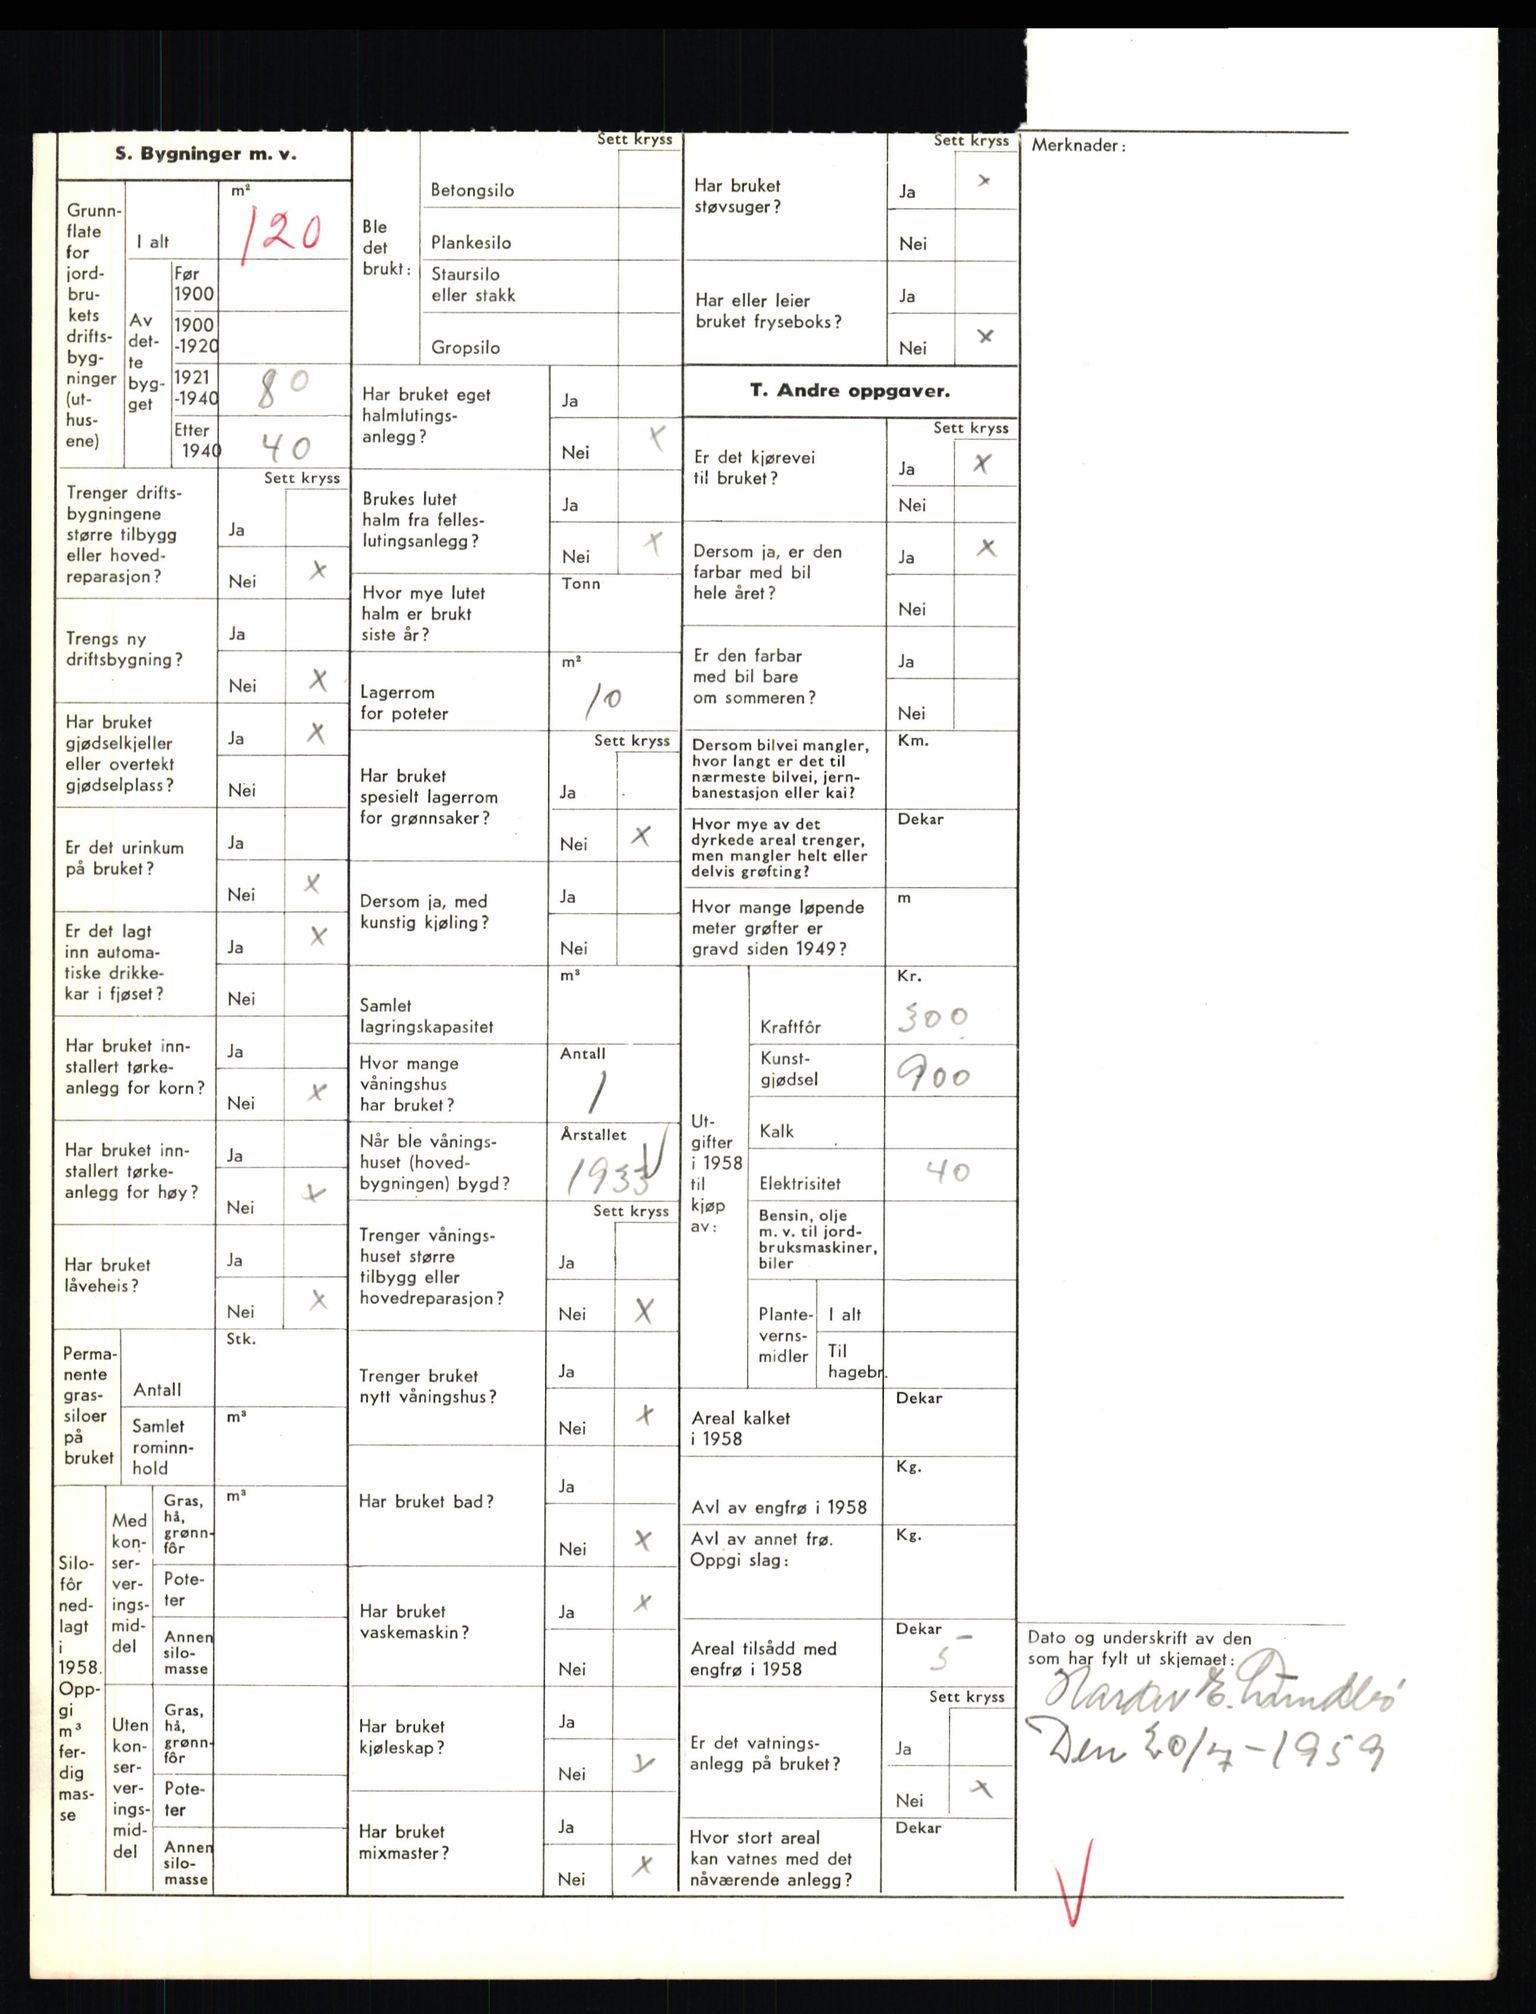 S. Bygninger m. v.
Grunn-
flate
for
jord-
bru-
kets
drifts-
byg-
ninger
(ut-
hus-
ene)
I alt
m²
120
Av
det-
te
byg-
get
Før
1900
1900
-1920
1921
-1940
80
Etter
1940
40
Sett kryss
Trenger drifts-
bygningene
større tilbygg
eller hoved-
reparasjon?
Ja
Nei x
Trengs ny
driftsbygning?
Ja
Nei x
Har bruket
gjødselkjeller
eller overtekt
gjødselplass?
Ja x
Nei
Er det urinkum
på bruket?
Ja
Nei x
Er det lagt
inn automa-
tiske drikke-
kar i fjøset?
Ja x
Nei
Har bruket inn-
stallert tørke-
anlegg for korn?
Ja
Nei x
Har bruket inn-
stallert tørke-
anlegg for høy?
Ja
Nei x
Har bruket
låveheis?
Ja
Nei x
Perma-
nente
gras-
siloer
på
bruket
Antall
Stk.
Samlet
rominn-
hold
m³
Silo-
fôr
ned-
lagt
i
1958.
Opp-
gi
m³
fer-
dig
mas-
se
Med
kon-
ser-
ver-
ings-
mid-
del
Gras,
hå,
grønn-
fôr
m³
Pote-
ter
Annen
silo-
masse
Uten
kon-
ser-
ver-
ings-
mid-
del
Gras,
hå,
grønn-
fôr
Pote-
ter
Annen
silo-
masse
Ble
det
brukt:
Sett kryss
Betongsilo
Plankesilo
Staursilo
eller stakk
Gropsilo
Har bruket eget
halmlutings-
anlegg?
Ja
Nei x
Brukes lutet
halm fra felles-
lutingsanlegg?
Ja
Nei x
Hvor mye lutet
halm er brukt
siste år?
Tonn
Lagerrom
for poteter
m²
10
Sett kryss
Har bruket
spesielt lagerrom
for grønnsaker?
Ja
Nei x
Dersom ja, med
kunstig kjøling?
Ja
Nei
Samlet
lagringskapasitet
m³
Hvor mange
våningshus
har bruket?
Antall
1
Når ble vånings-
huset (hoved-
bygningen) bygd?
Årstallet
1933
Sett kryss
Trenger vånings-
huset større
tilbygg eller
hovedreparasjon?
Ja
Nei x
Trenger bruket
nytt våningshus?
Ja
Nei x
Har bruket bad?
Ja
Nei x
Har bruket
vaskemaskin?
Ja x
Nei
Har bruket
kjøleskap?
Ja
Nei x
Har bruket
mixmaster?
Ja
Nei x
Sett kryss
Har bruket
støvsuger?
Ja x
Nei
Har eller leier
bruket fryseboks?
Ja
Nei x
T. Andre oppgaver.
Sett kryss
Er det kjørevei
til bruket?
Ja x
Nei
Dersom ja, er den
farbar med bil
hele året?
Ja x
Nei
Er den farbar
med bil bare
om sommeren?
Ja
Nei
Dersom bilvei mangler,
hvor langt er det til
nærmeste bilvei, jern-
banestasjon eller kai?
Km.
Hvor mye av det
dyrkede areal trenger,
men mangler helt eller
delvis grøfting?
Dekar
Hvor mange løpende
meter grøfter er
gravd siden 1949?
m
Ut-
gifter
i 1958
til
kjøp
av:
Kr.
Kraftfôr 300
Kunst-
gjødsel 900
Kalk
Elektrisitet 40
Bensin, olje
m. v. til jord-
bruksmaskiner,
biler
Plante-
verns-
midler
I alt
Til
hagebr.
Areal kalket
i 1958
Dekar
Avl av engfrø i 1958
Kg.
Avl av annet frø.
Oppgi slag:
Kg.
Areal tilsådd med
engfrø i 1958
Dekar
5
Sett kryss
Er det vatnings-
anlegg på bruket?
Ja
Nei x
Hvor stort areal
kan vatnes med det
nåværende anlegg?
Dekar
Merknader:
Dato og underskrift av den
som har fylt ut skjemaet:
E.
Den 20/7-1959